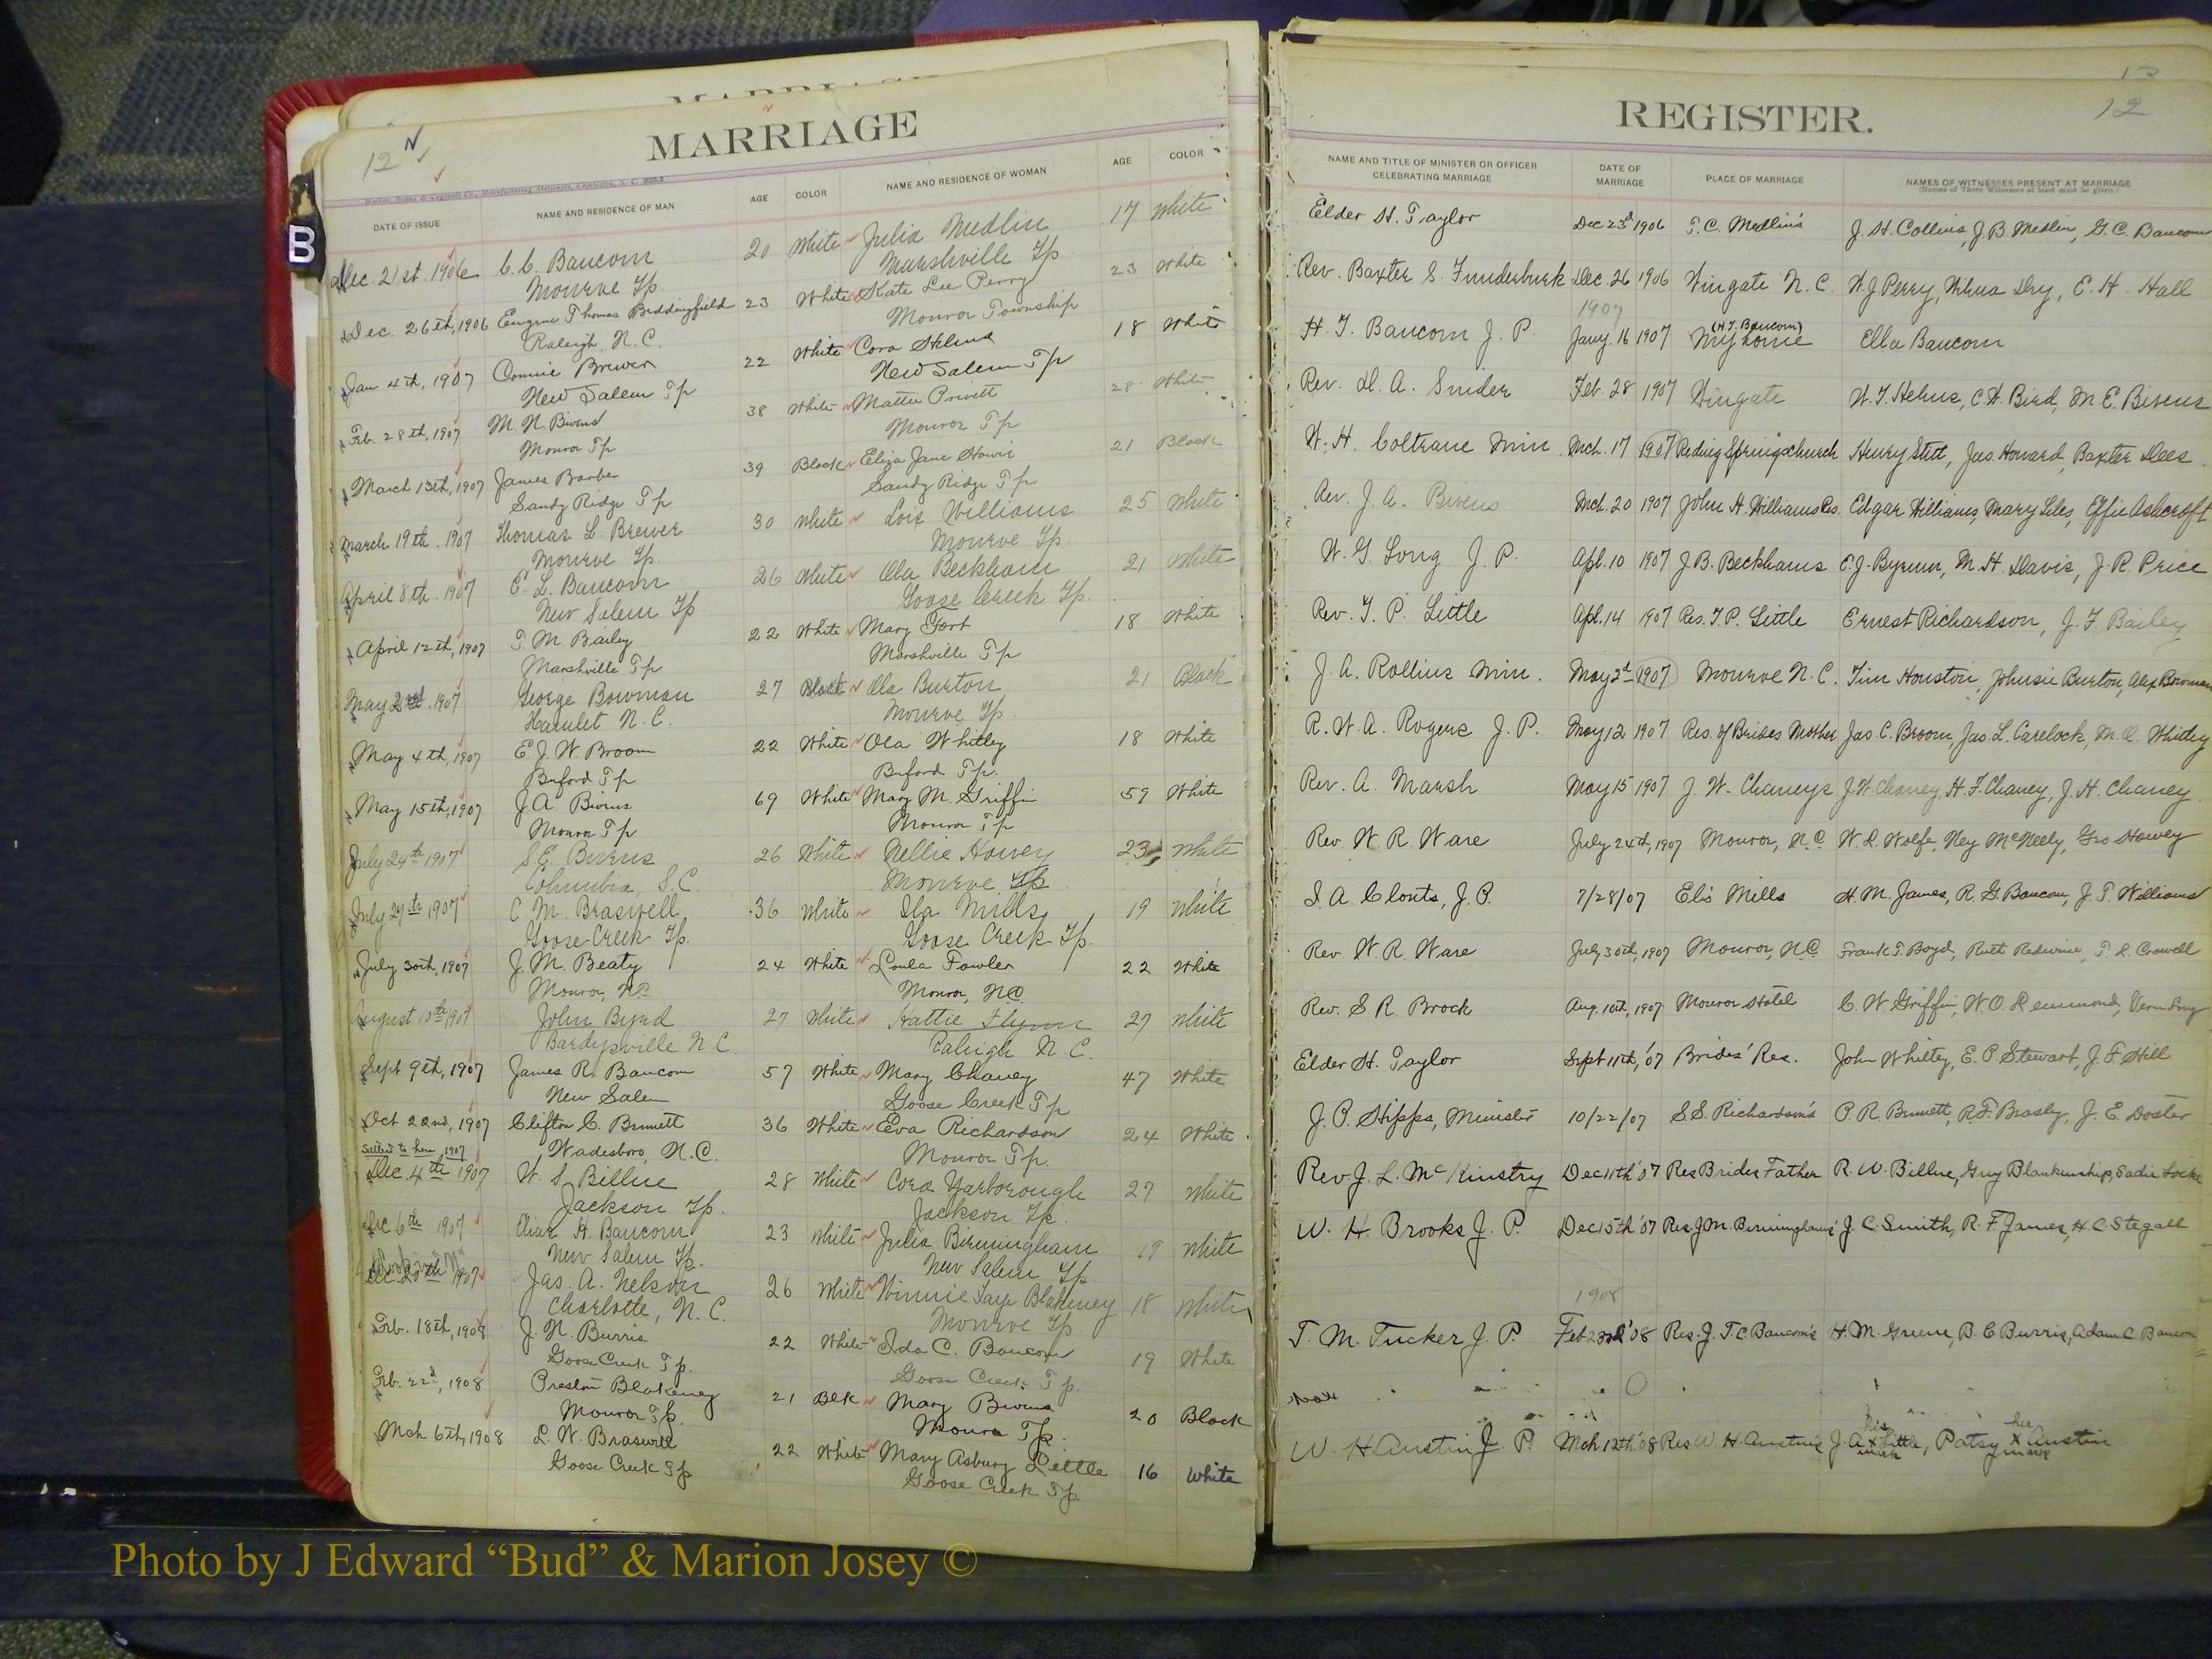 MARRIAGE
12
DATE OF ISSUE NAME AND RESIDENCE OF MAN AGE COLOR NAME AND RESIDENCE OF WOMAN AGE COLOR
Dec. 21st. 1906 C. C. Baucom 20 White Julia Medlin 17 White
Monroe Tp. Marshville Tp
Dec. 26th, 1906 Eugene Thomas Beddingfield 23 White Kate Lee Perry 23 White
Raleigh, N.C. Monroe Township
Jan 4th, 1907 Connie Brewer 22 White Cora Helms 18 White
New Salem Tp New Salem Tp
Feb. 28th, 1907 M. N. Bivens 38 White Mattie Privett 28 White
Monroe Tp Monroe Tp
March 13th, 1907 James Barber 39 Black Eliza Jane 21 Black
Sandy Ridge Tp Sandy Ridge Tp
March 19th. 1907 Thomas L. Brewer 30 White Lois Williams 25 White
Monroe Tp. Monroe Tp.
April 8th. 1907 E. L. Baucom 26 White Ola Beckham 21 White
New Salem Tp. Goose Creek Tp.
April 12th, 1907 T. M. Bailey 22 White Mary 18 White
Marshville Tp Marshville Tp
May 2nd. 1907 George Bowman 27 Black Ola Burton 21 Black
Hamlet N.C. Monroe Tp.
May 4th, 1907 E. J. W. Broom 22 White Ola Whitley 18 White
Buford Tp Buford Tp.
May 15th, 1907 J. A. Bivens 69 White Mary M. Griffin 59 White
Monroe Tp Monroe Tp
July 24th 1907 S. E. Bivens 26 White Nellie Howey 23 White
Columbia, S.C. Monroe Tp
July 27th 1907 C. M. Braswell 36 White Ila Mills 19 White
Goose Creek Tp. Goose Creek Tp.
July 30th, 1907 J. M. Beaty 24 White Loula Fowler 22 White
Monroe, N.C. Monroe, N.C.
August 10th 1907 John Byrd 27 White Hattie Flynn 27 White
N.C. Raleigh N.C.
Sept 9th, 1907 James R. Baucom 57 White Mary Chaney 47 White
New Salem Goose Creek Tp
Oct 22nd, 1907 Clifton C. Bennett 36 White Eva Richardson 24 White
Wadesboro, N.C. Monroe Tp.
Dec 4th 1907 W. S. Billue 28 White Cora Yarborough 27 White
Jackson Tp. Jackson Tp.
Dec 6th 1907 H. Baucom 23 White Julia Birmingham 19 White
New Salem Tp. New Salem Tp.
Dec 20th 1907 Jas. A. Nelson 26 White Winnie Faye Blakeney 18 White
Charlotte, N.C. Monroe Tp
Feb. 18th, 1908 J. N. Burris 22 White Ida C. Baucom 19 White
Goose Creek Tp. Goose Creek Tp.
Feb. 22d, 1908 Preston Blakeney 21 Blk Mary Bivens 20 Black
Monroe Tp. Monroe Tp.
Mch 6th, 1908 L. W. Braswell 22 White Mary Asbury Little 16 White
Goose Creek Tp Goose Creek Tp
REGISTER.
12
NAME AND TITLE OF MINISTER OR OFFICER CELEBRATING MARRIAGE DATE OF MARRIAGE PLACE OF MARRIAGE NAMES OF WITNESSES PRESENT AT MARRIAGE
(Names of Three Witnesses at least must be given.)
Elder H. Taylor Dec 23d 1906 T. C. Medlin's J. H. Collins, J. B Medlin, G. C. Baucom
Rev. Baxter S. Funderburk Dec. 26 1906 Wingate N.C. W J Perry, E. H. Hall
1907
H. T. Baucom J. P. Jany. 16 1907 My home (H. T. Baucom) Ella Baucom
Rev. D. A. Snider Feb. 28 1907 Wingate W. T. Helms, C. W. Bird, M. E. Bivens
W. H. Coltrane Min Mch. 17 1907 Reding Springs church Henry Stitt, Jas Howard, Baxter Dees
Rev. J. A. Bivens Mch. 20 1907 John H. Williams Res. Edgar Williams, Mary Liles, Effie Ashcroft
W. G Long J. P. Apl. 10 1907 J. B. Beckhams E. J. Byrum, M. H. Davis, J. R. Price
Rev. T. P. Little Apl. 14 1907 Res. T. P. Little Ernest Richardson, J. F. Bailey
J. A. Rollins Min. May 2d 1907 Monroe N.C. Tim Houston, Johnsie Burton, Alex Bowman
R. W. A. Rogers J. P. May 12 1907 Res. of Brides Mother Jas. C. Broom, Jas. L. Carelock, M. A. Whitley
Rev. A. Marsh May 15 1907 J. W. Chaneys J. W. Chaney, H. F. Chaney, J. H. Chaney
Rev. W. R. Ware July 24th, 1907 Monroe, N.C. W. R. Wolfe, Ney McNeely, Geo Howey
S. A. Clonts, J. P. 7/28/07 Eli's Mills H. M. James, R. G. Baucom, J. T. Williams
Rev. W. R. Ware July 30th, 1907 Monroe, N.C. Frank T. Boyd, Ruth Redwine, T. L. Crowell
Rev. S. R. Brock Aug. 10th, 1907 Monroe Hotel C. W. Griffin, W. O. Lemmond, Vern Long
Elder H. Taylor Sept 11th, '07 Brides' Res. John Whitley, E. P. Stewart, J. F. Hill
J. P. Hipps, Minister 10/22/07 S. S. Richardson's P. R. Bennett, R. F. Beasley, J. E. Doster
Rev. J. L. McKinstry Dec 11th '07 Res Brides Father R. W. Billue, Guy Blankenship, Sadie Locke
W. H. Brooks J. P. Dec 15th '07 Res J. M. Birmingham's J. C. Smith, R. F. James, H C Stegall
1908
T. M. Tucker J. P. Feb 23rd '08 Res. J. T. C Baucom's H. M. Greene, B. C Burris, Adam C Baucom
W. H Austin J. P. Mch 12th '08 Res W H Austin's J. A. his x mark Little, Patsy her x mark Austin
B
Photo by J Edward “Bud” & Marion Josey ©